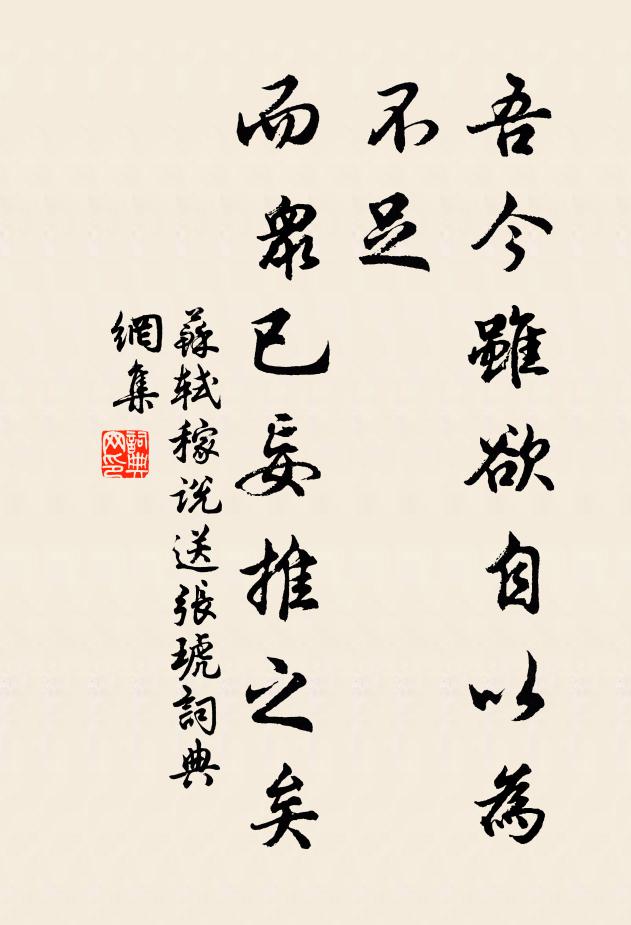 吾今雖欲自以為
不足
而衆已妄推之矣
蘇軾稼説送張琥詞典
網集
詞典
网印